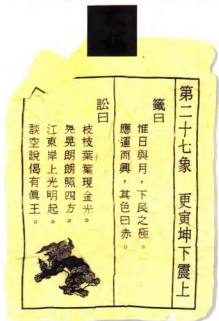 第二十七象　更寅坤下震上
籤曰
惟日與月，下民之極。
應運而興，其色曰赤。
訟曰
枝枝葉葉現金光。
晃晃朗朗照四方。
江東岸上光明起。
談空說偈有眞王。